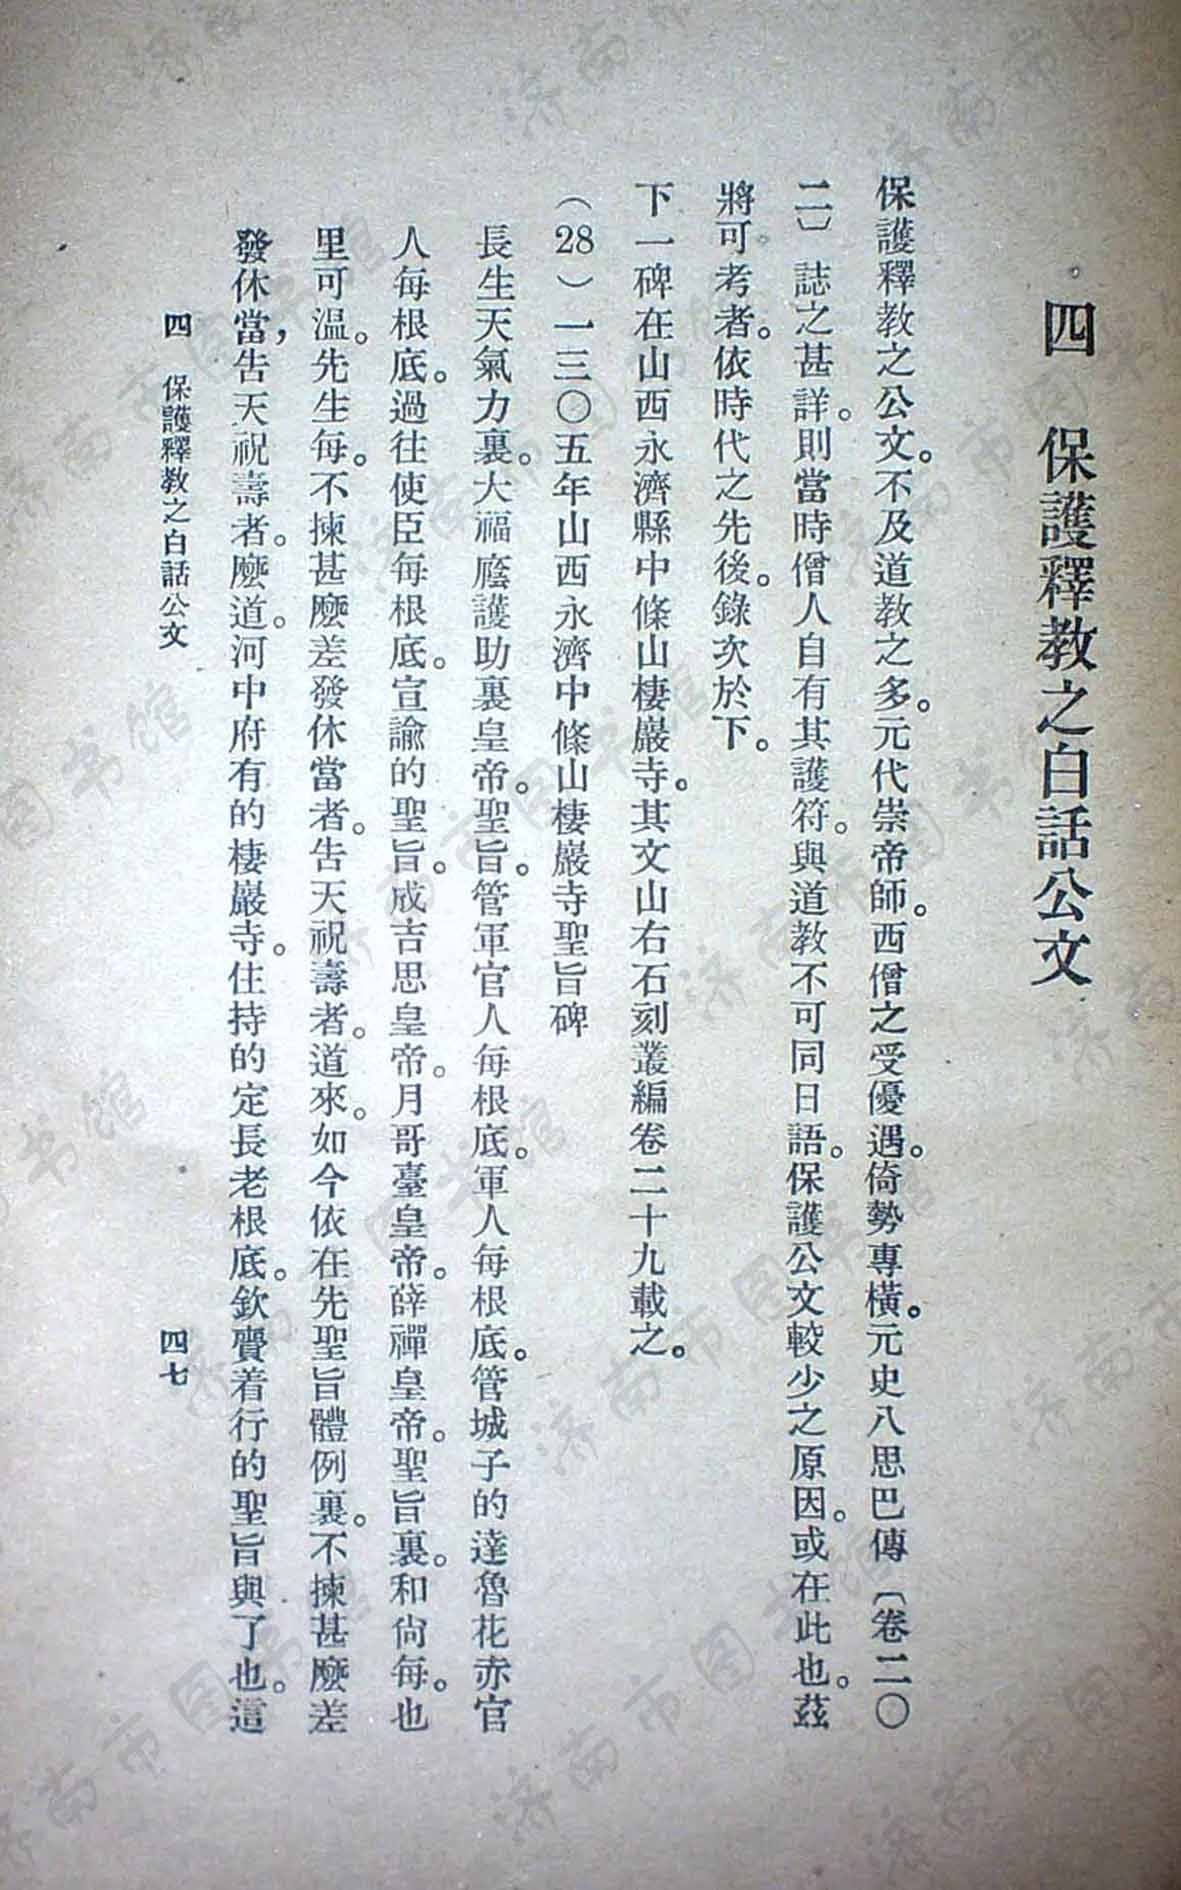 四　保護釋教之白話公文
保護釋教之公文。不及道教之多。元代崇帝師。西僧之受優遇。倚勢專橫。元史八思巴傳〔卷二〇
二〕誌之甚詳。則當時僧人自有其護符。與道教不可同日語。保護公文較少之原因。或在此也。茲
將可考者。依時代之先後。錄次於下。
下一碑在山西永濟縣中條山棲巖寺。其文山右石刻叢編卷二十九載之。
（28）一三〇五年山西永濟中條山棲巖寺聖旨碑
長生天氣力裏。大福廕護助裏皇帝。聖旨。管軍官人每根底。軍人每根底。管城子的達魯花赤官
人每根底。過往使臣每根底。宣諭的聖旨。成吉思皇帝。月哥臺皇帝。薛禪皇帝。聖旨裏。和尙每。也
里可溫。先生每。不揀甚麼差發休當者。告天祝壽者。道來。如今依在先聖旨體例裏。不揀甚麼差
發休當，告天祝壽者。麼道。河中府有的棲巖寺。住持的定長老根底。欽賷着行的聖旨與了也。這
四　保護釋教之白話公文
四七
济南市图书馆